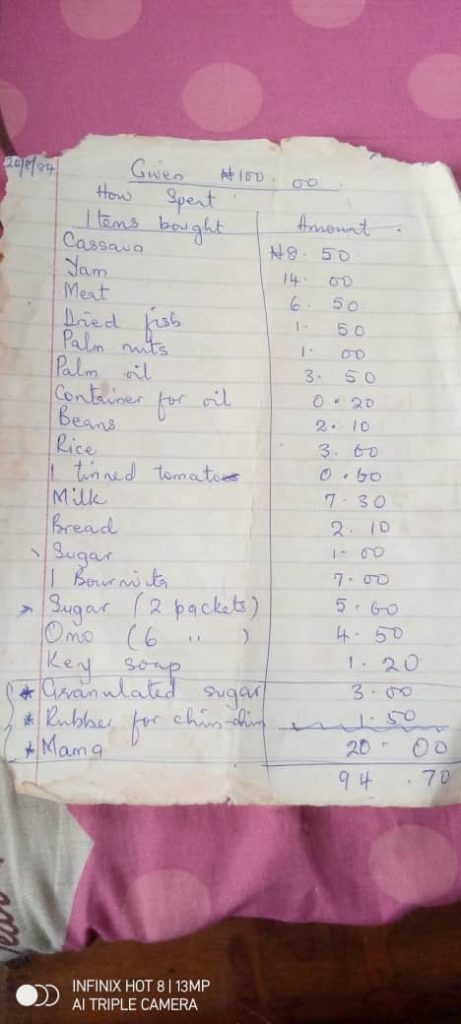 20/8/84 Given ₦100.00
How Spent
Items bought Amount.
Cassava ₦8.50
Yam 14.00
Meat 6.50
Dried fish 1.50
Palm nuts 1.00
Palm oil 3.50
Container for oil 0.20
Beans 2.10
Rice 3.60
1 tinned tomato 0.60
Milk 7.30
Bread 2.10
Sugar 1.00
1 Bournvita 7.00
Sugar (2 packets) 5.60
Omo (6 " ) 4.50
Key soap 1.20
* Granulated sugar 3.00
* Rubber for chin-chin 1.50
* Mama 20.00
94.70
INFINIX HOT 8 | 13MP
AI TRIPLE CAMERA